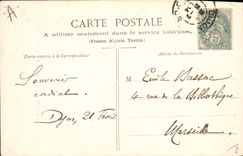 CARTE POSTALE
A utiliser seulement dans le service intérieur,
(France, Algérie, Tunisie.)
Partie réservée à la Correspondance
Adresse du Destinataire
Souvenir
cordial
Emile Bassac
4 rue de la Bibliothèque
Marseille